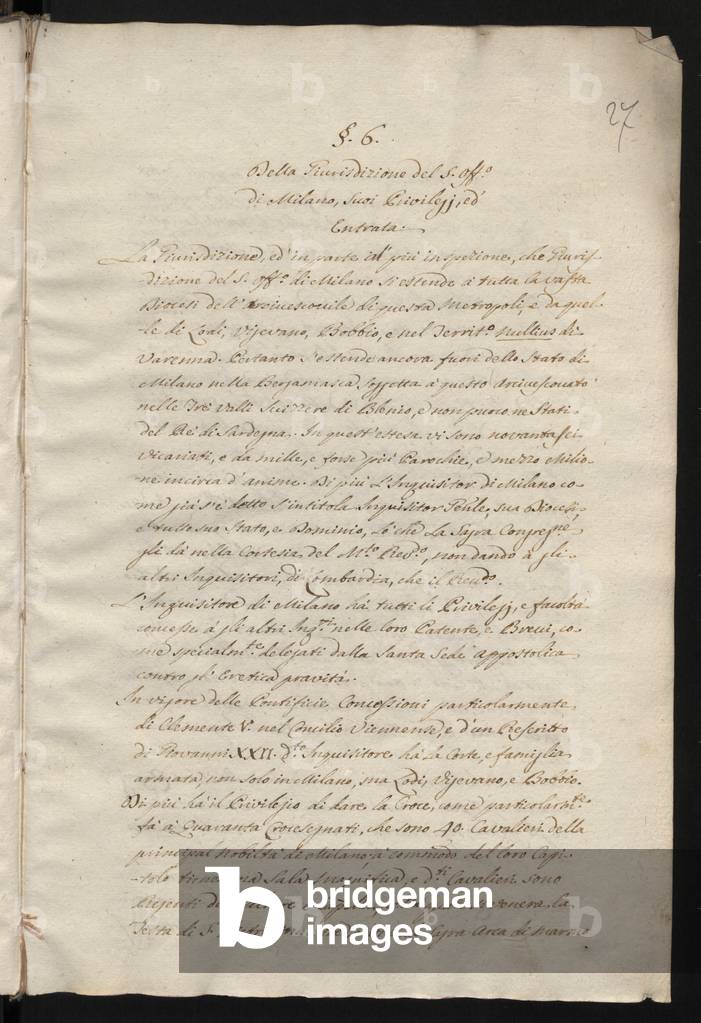 27
§. 6.
Della Giurisdizione del S. Off.o
di Milano, Suoi Privilejj, ed
Entrata.
La Giurisdizione, ed in parte più inspezione, che Giuris-
dizione del S. Off.o di Milano si estende à tutta la vasta
Diocesi dell'Arcivescovile di questa Metropoli, e da quel-
le di Lodi, Vijevano, Bobbio, e nel Territ.o nullius di
Varenna. Pertanto s'estende ancora fuori dello Stato di
Milano nella Berjamasca Soggetta à questo Arcivescovato
nelle Trè Valli Svizzere di Blenio, e non puoco ne Stati
del Rè di Sardegna. In quest'estesa vi sono novantasei
Vicariati, e da mille, e forse più Parochie, e mezzo Milio-
ne incirca d'anime. Di più L'Inquisitor di Milano co-
me già s'è detto s'intitola Inquisitor Gn̄le, sua Diocesi,
e tutto suo Stato, e Dominio, Lo chè La Sagra Congreg.ne
gli dà nella Cortesia del M.to Rev.o, non dando à gli
altri Inquisitori, di Lombardia, che il Revd.o.
L'Inquisitore di Milano hà tutti li Privilejj, e facoltà
concesse à gli altri Inq.ri nelle loro Patente, e Brevi, co-
me specialm.te delegati dalla Santa Sede Appostolica
contro gl'Eretica pravità.
In vijore delle Pontificie Concessioni particolarmente
di Clemente V. nel Concilio Viennense, e d'un Rescritto
di Giovanni XXII. d.to Inquisitore hà La Corte, e famiglia
armata, non solo in Milano, ma Lodi, Vijevano, e Bobbio.
Di più hà il Privilejio di dare la Croce, come particolarm.te
fà à Quaranta Crocesegnati, che sono 40. Cavalieri della
principal Nobiltà di Milano, à commodo del loro Capi-
tolo tiene una Sala Magnifica, e d.ti Cavalieri sono
venera la
Testa di S. Pietro
Sagra Arca di marmo
bridgeman
images